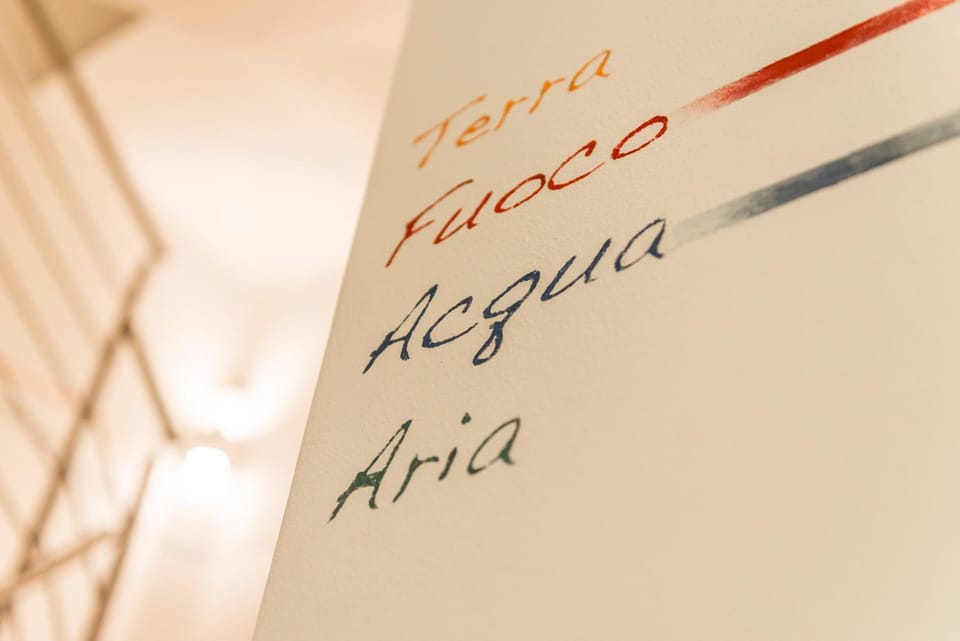 Terra
Fuoco
Acqua
Aria